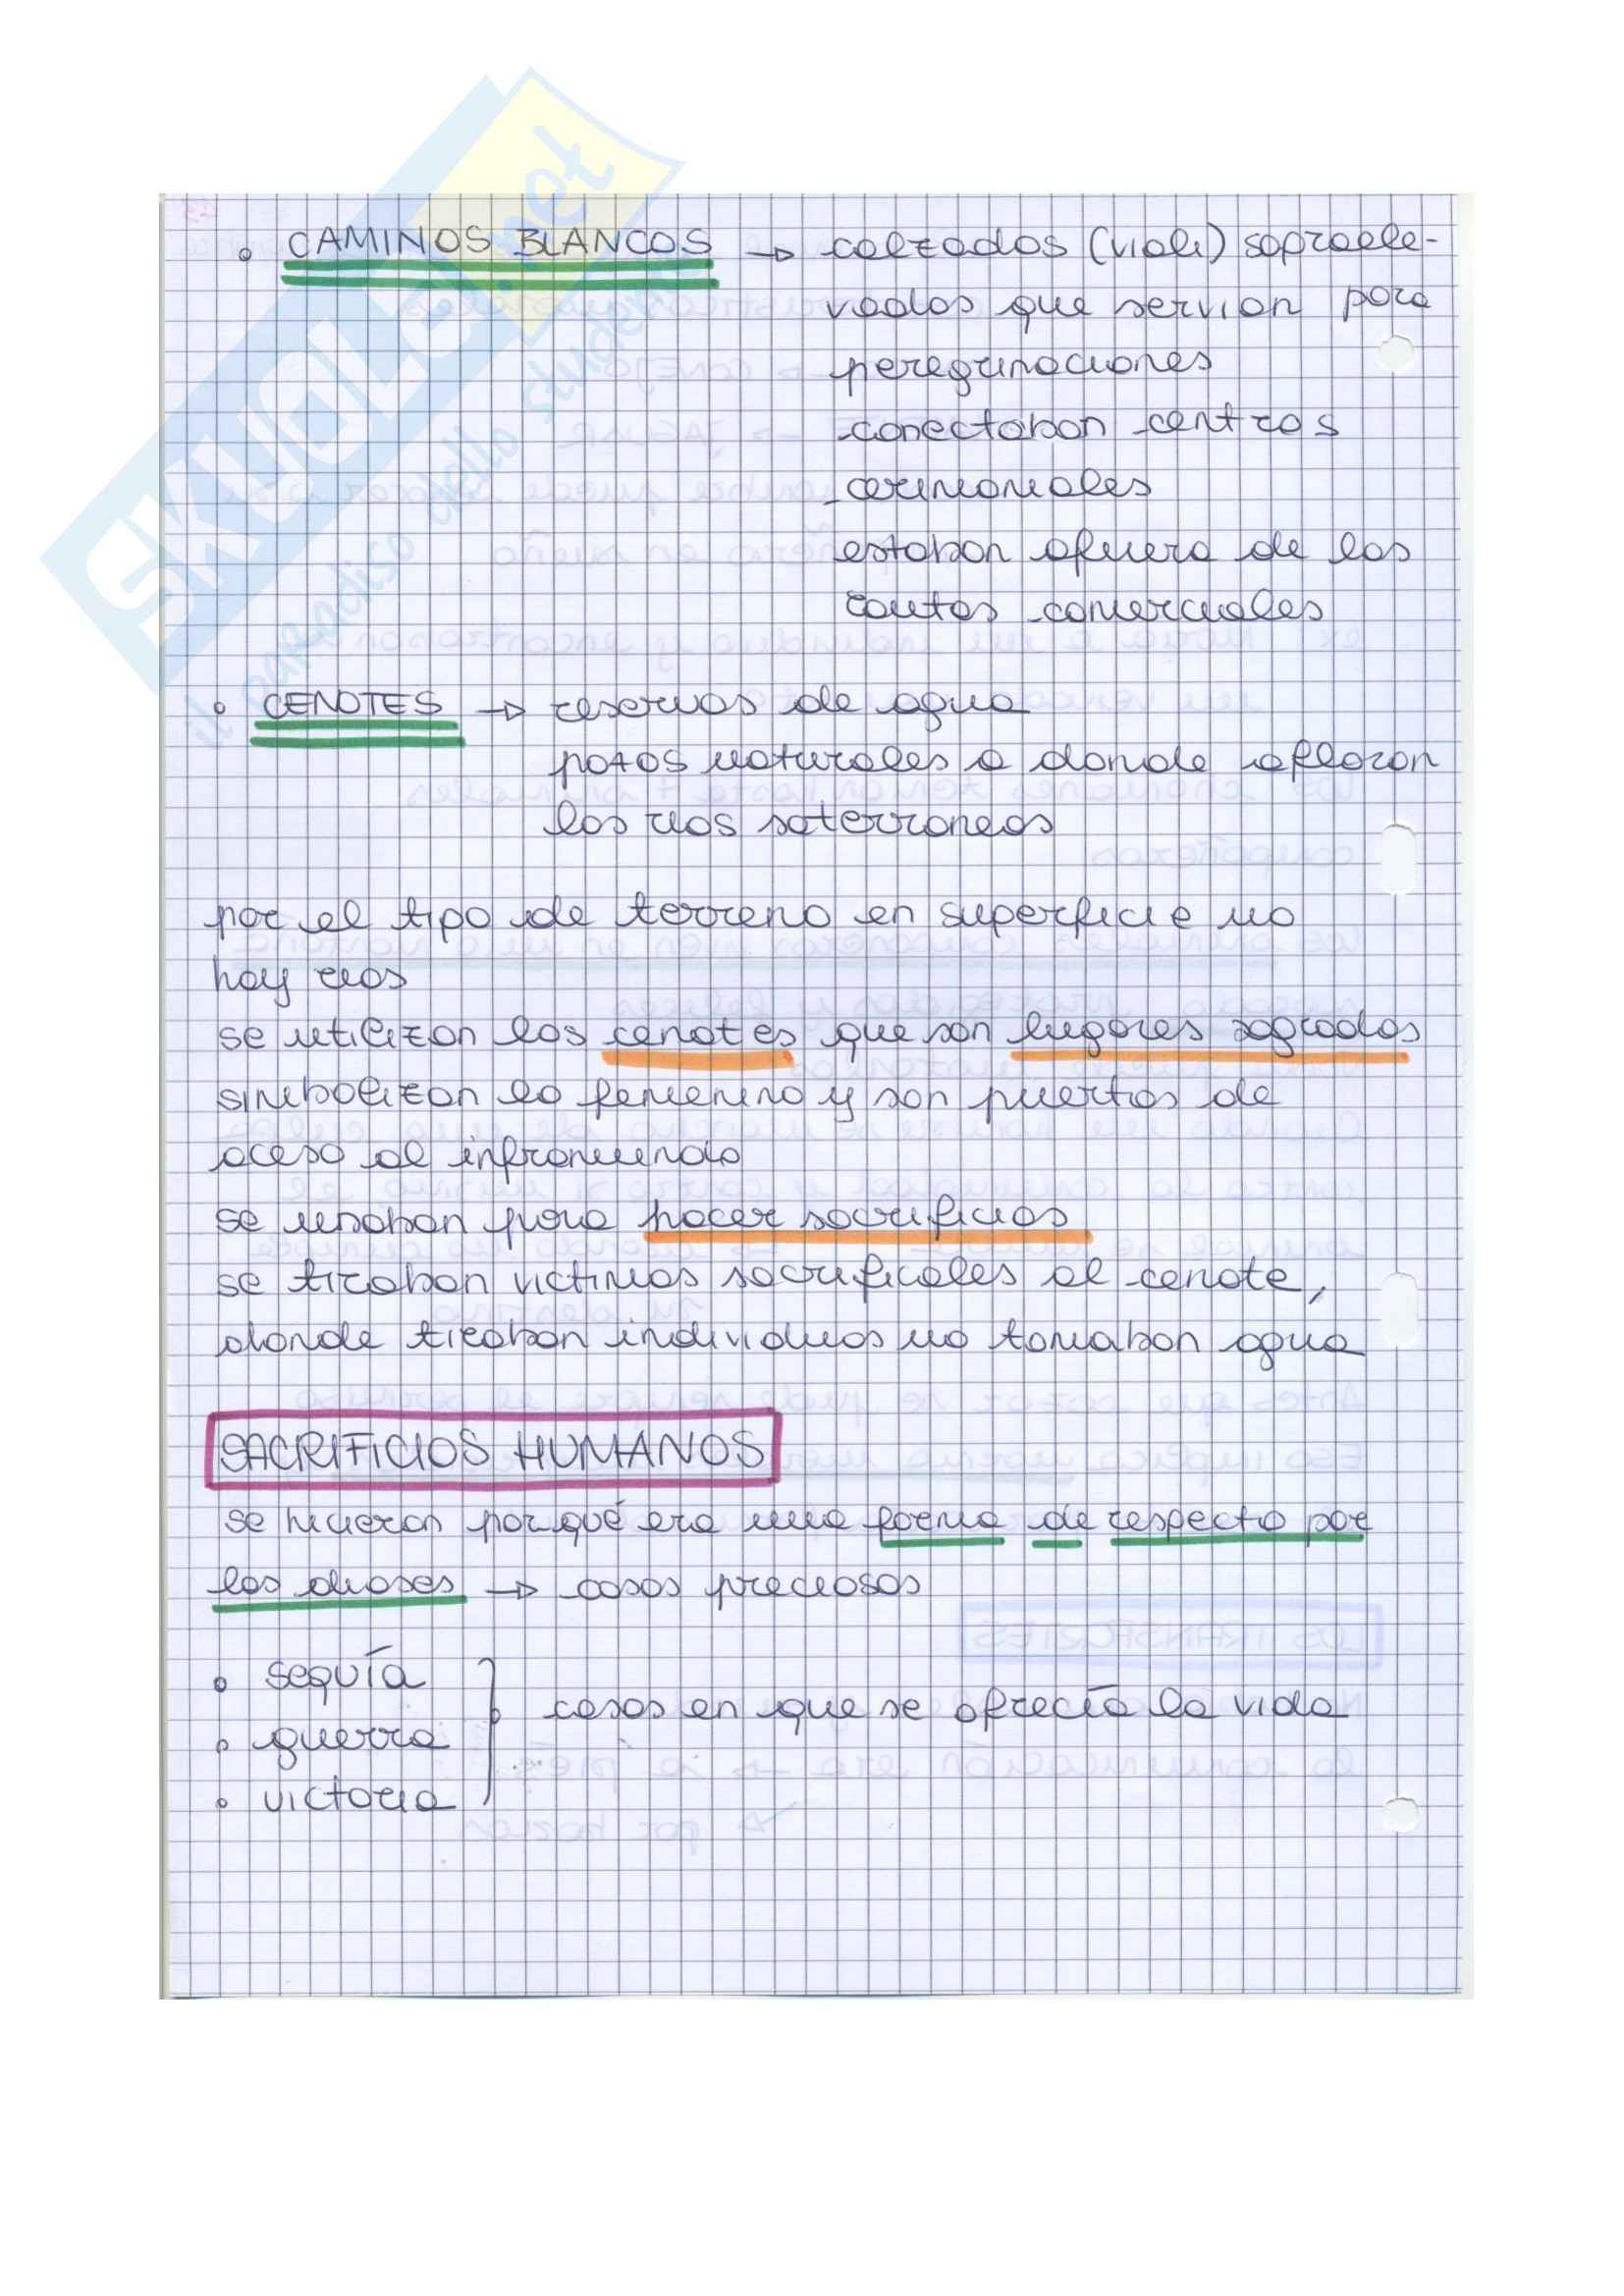 • CAMINOS BLANCOS → calzadas (viali) sopraele-
vadas que servian para
peregrinaciones
conectaban centros
cerimoniales
estaban afuera de las
rautas comerciales
• CENOTES → reservas de agua
pozos naturales a donde afloran
los rios soterraneos
por el tipo de terreno en superficie no
hay rios
se utilizan los cenotes que son lugares sagrados
simbolizan lo femenino y son puertas de
aceso al inframundo
se usaban para hacer sacrificios
se tiraban victimas sacrificales al cenote,
donde tiraban individuos no tomaban agua
SACRIFICIOS HUMANOS
se hicieron porqué era una forma de respecto por
los dioses → cosas preciosas
• sequía
• guerra
• victoria
casos en que se ofrecía la vida
SKUOLA.net
il paradiso dello studente